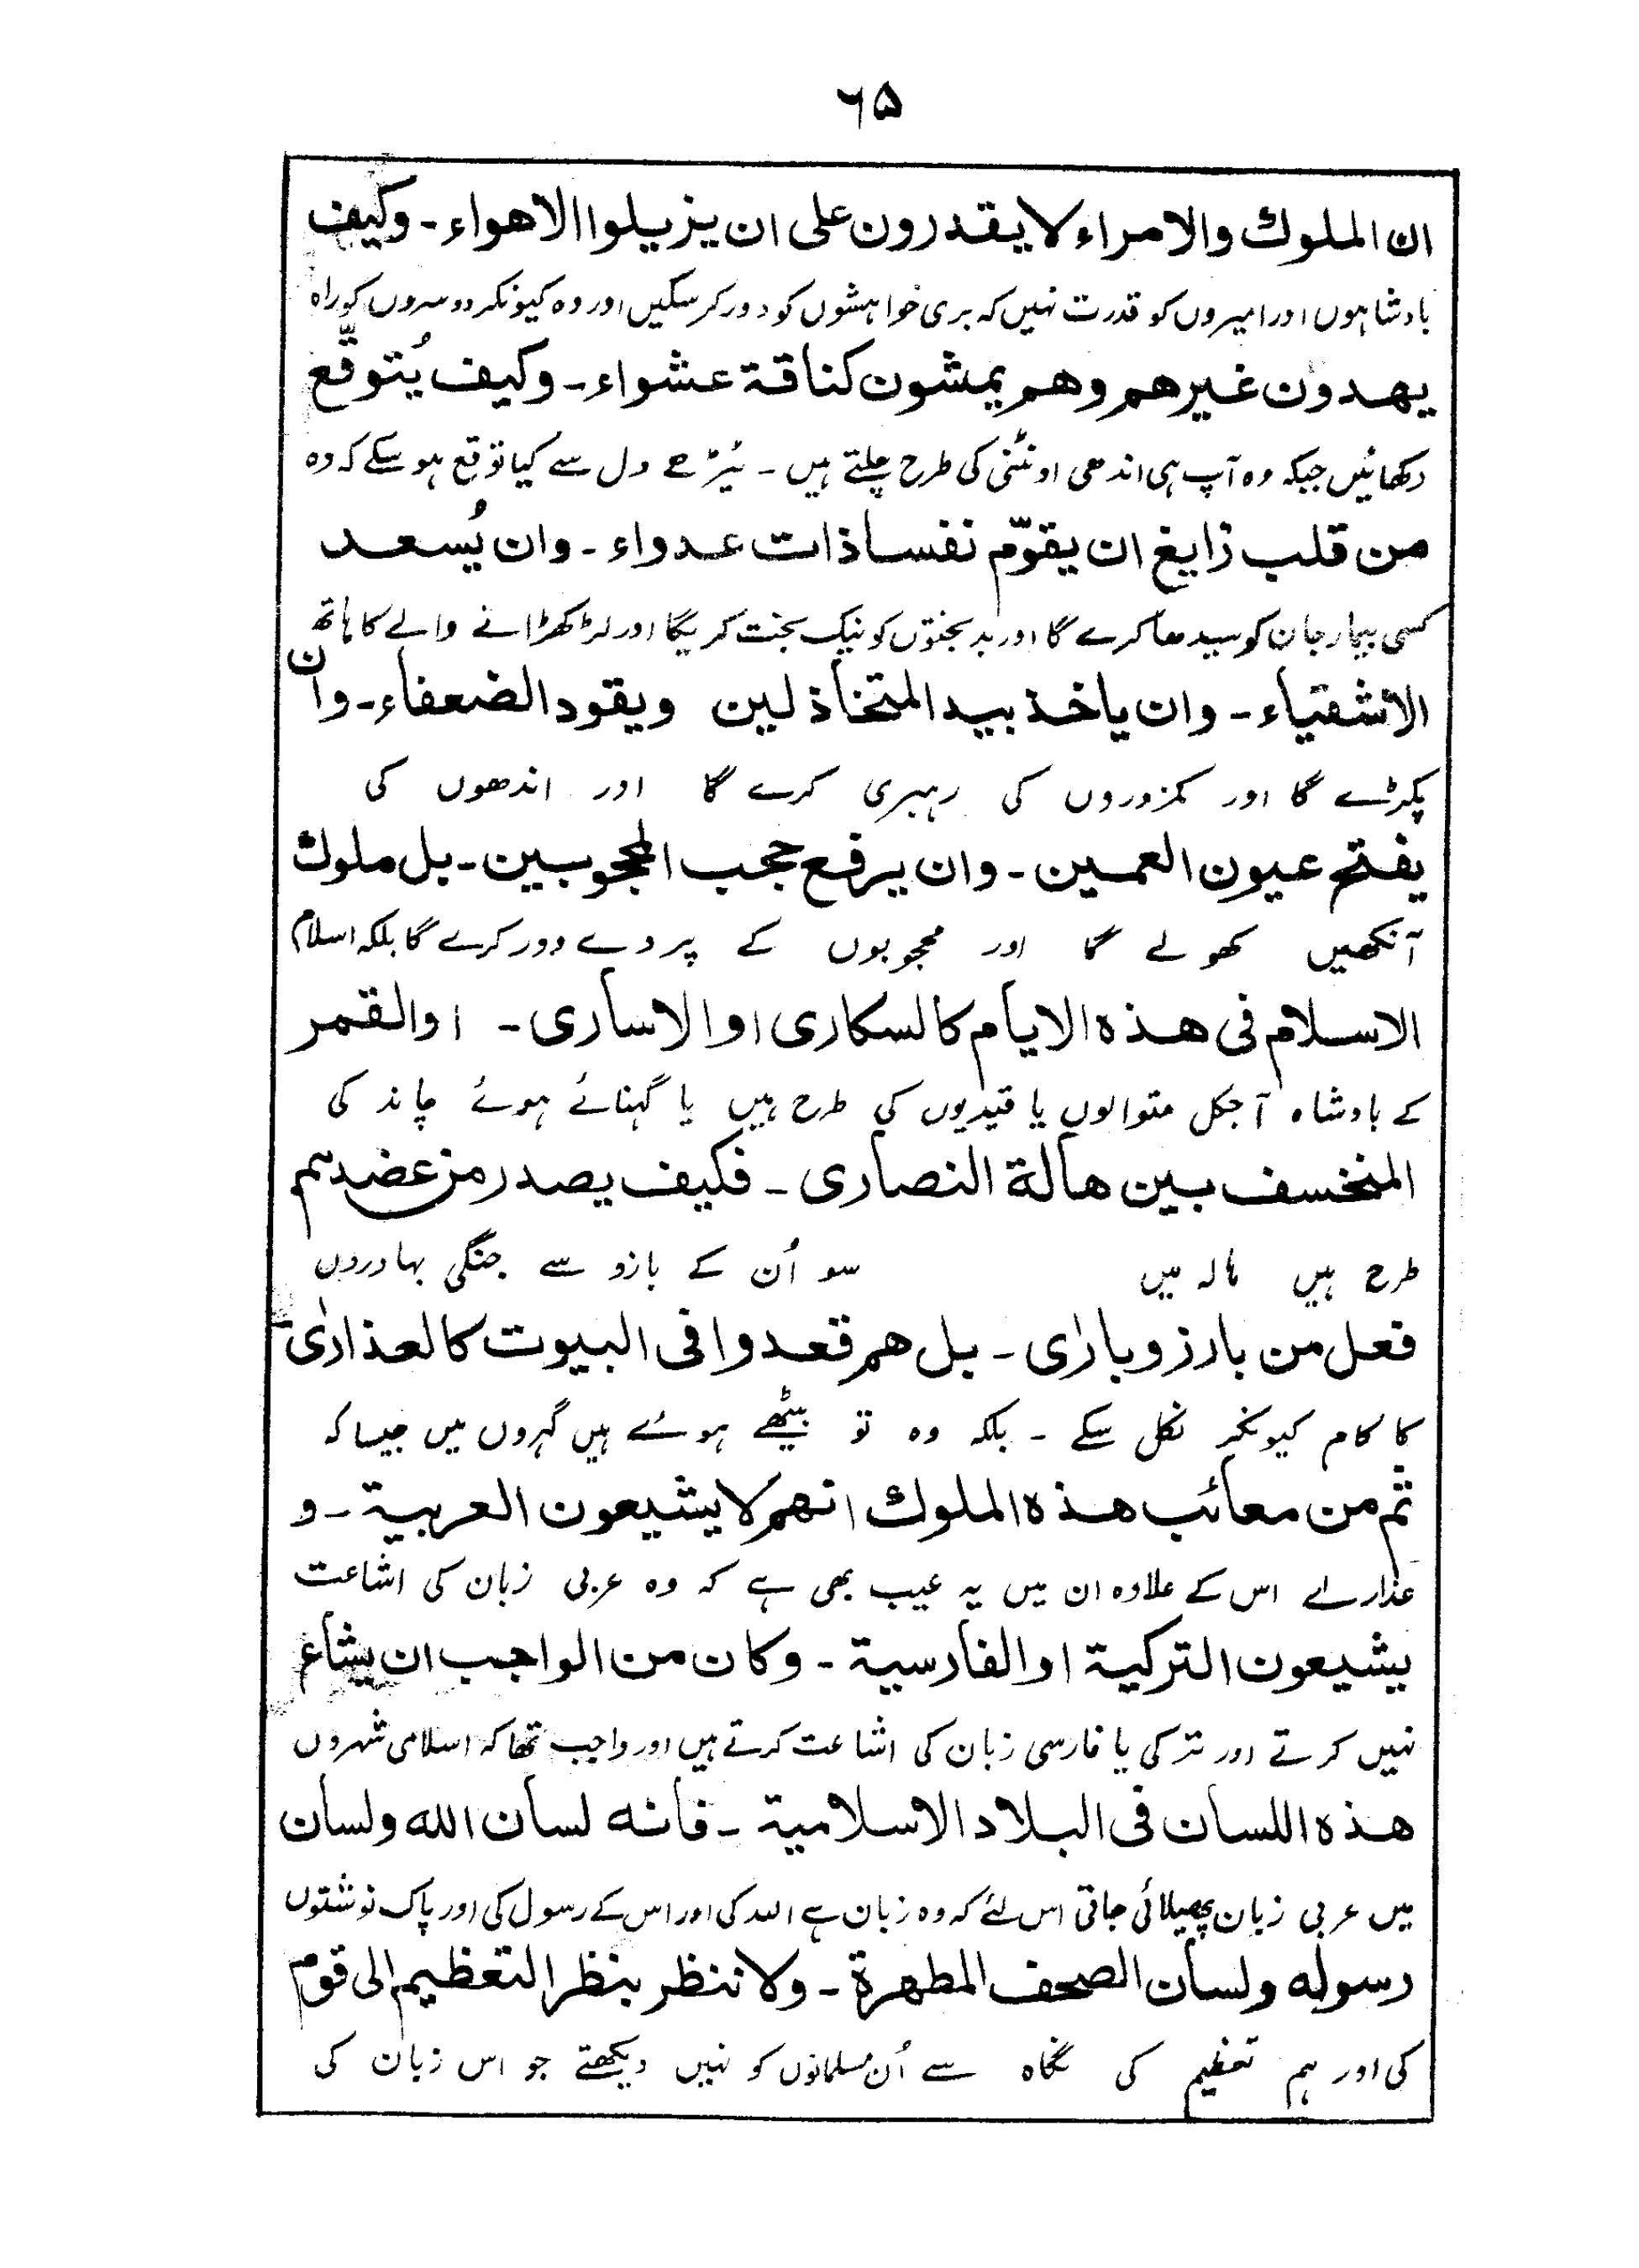 ۶۵
ان الملوك والامراء لا يقدرون على ان يزيلوا الاهواء ـ وكيف
بادشاہوں اور امیروں کو قدرت نہیں کہ بری خواہشوں کو دور کر سکیں اور وہ کیونکر دوسروں کو راہ
يهدون غيرهم وهم يمشون كناقة عشواء ـ وكيف يُتوقّع
دکھائیں جبکہ وہ آپ ہی اندھی اونٹنی کی طرح چلتے ہیں ۔ ٹیڑھے دل سے کیا توقع ہو سکے کہ وہ
من قلب زايغ ان يقوّم نفسا ذات عدواء ـ وان يُسعد
کسی بیمار جان کو سیدھا کرے گا اور بدبختوں کو نیک بخت کریگا اور لڑکھڑانے والے کا ہاتھ
الاشقياء ـ وان ياخذ بيد المتخاذلين ويقود الضعفاء ـ وان
پکڑے گا اور کمزوروں کی رہبری کرے گا اور اندھوں کی
يفتح عيون العمين ـ وان يرفع حجب المحجوبين ـ بل ملوك
آنکھیں کھولے گا اور محجوبوں کے پردے دور کرے گا بلکہ اسلام
الاسلام فى هذه الايام كالسكارى او الاسارى ـ او القمر
کے بادشاہ آجکل متوالوں یا قیدیوں کی طرح ہیں یا گہنائے ہوئے چاند کی
المنخسف بين هالة النصارى ـ فكيف يصدر من عضدهم
طرح ہیں ہالہ میں سو اُن کے بازو سے جنگی بہادروں
فعل من بارز وبارٰى ـ بل هم قعدوا فى البيوت كالعذارٰى
کا کام کیونکر نکل سکے ۔ بلکہ وہ تو بیٹھے ہوئے ہیں گہروں میں جیسا کہ
ثم من معائب هذه الملوك انهم لا يشيعون العربية ـ و
عذارے اس کے علاوہ ان میں یہ عیب بھی ہے کہ وہ عربی زبان کی اشاعت
يشيعون التركية او الفارسية ـ وكان من الواجب ان يشاع
نہیں کرتے اور ترکی یا فارسی زبان کی اشاعت کرتے ہیں اور واجب تھا کہ اسلامی شہروں
هذه اللسان فى البلاد الاسلامية ـ فانه لسان الله ولسان
میں عربی زبان پھیلائی جاتی اس لئے کہ وہ زبان ہے اللہ کی اور اس کے رسول کی اور پاک نوشتوں
رسوله ولسان الصحف المطهرة ـ ولا ننظر بنظر التعظيم الى قوم
کی اور ہم تعظیم کی نگاہ سے اُن مسلمانوں کو نہیں دیکھتے جو اس زبان کی